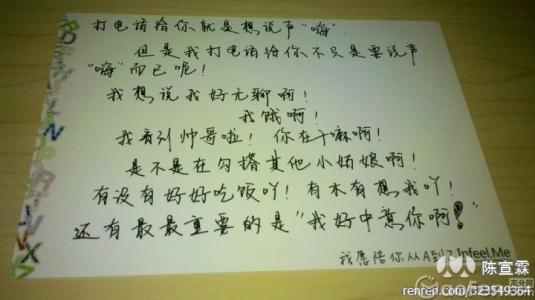 打电话给你就是想说声“嗨”
但是我打电话给你不只是要说声
“嗨”而已呢！
我想说我好无聊啊！
我饿啊！
我看到帅哥啦！你在干嘛啊！
是不是在勾搭其他小姑娘啊！
有没有好好吃饭吖！有木有想我吖！
还有最最最重要的是“我好中意你啊！”
我愿陪你从A到Z Infeel.Me
陈宣霖
renren.com/323549364